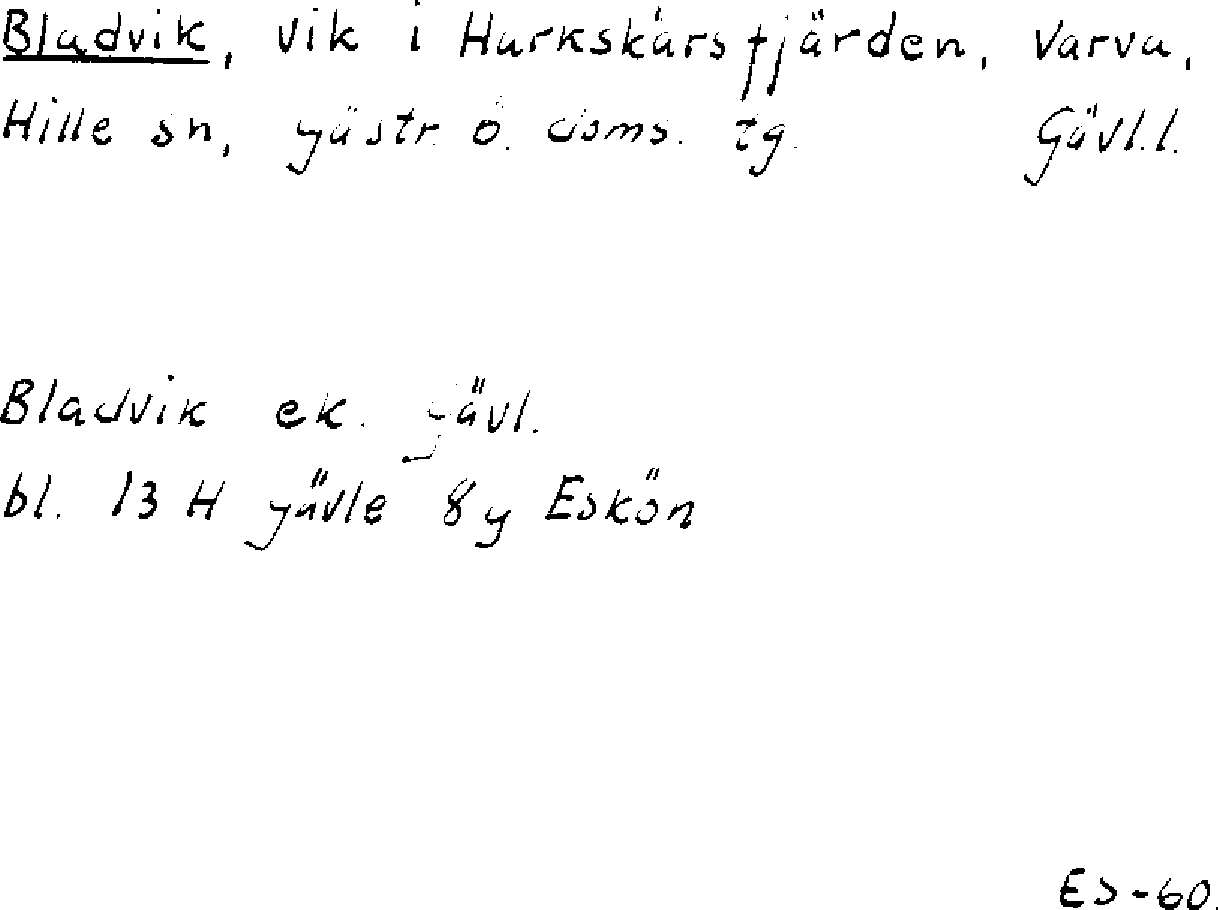 Bladvik, vik i Harkskärsfjärden, Varva,
Hille sn, gästr. ö. doms. tg. Gävl.l.
Bladvik ek. gävl.
bl. 13 H gävle 8 g Eskön
ES-60.